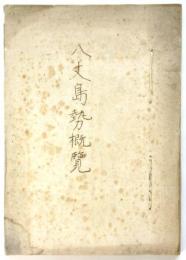 八丈島勢概覧